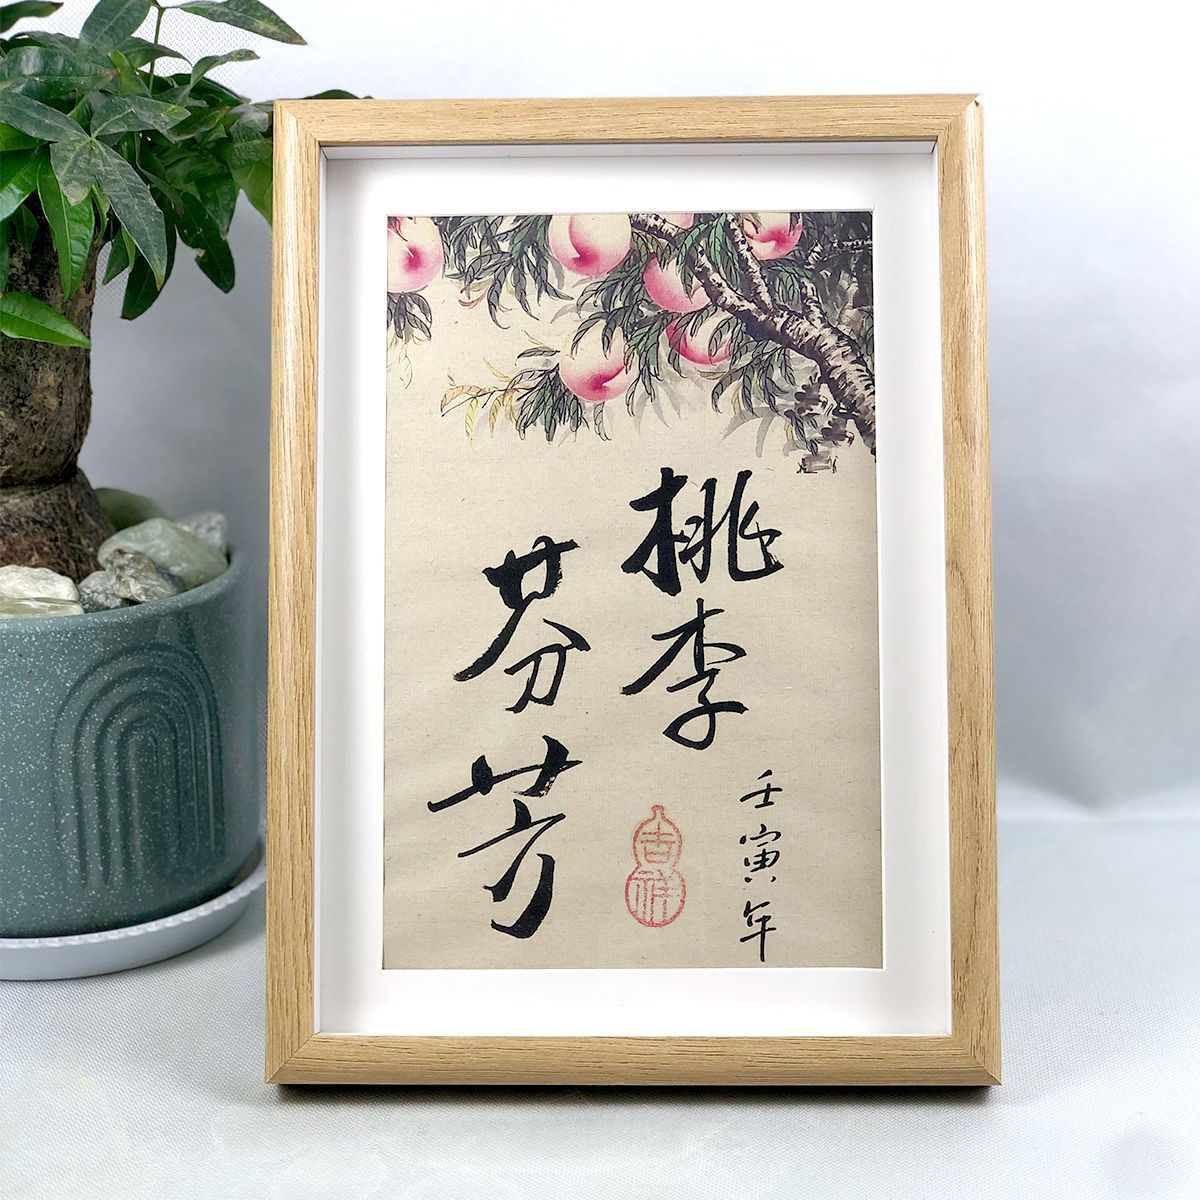 桃李
芬芳
壬寅年
吉祥